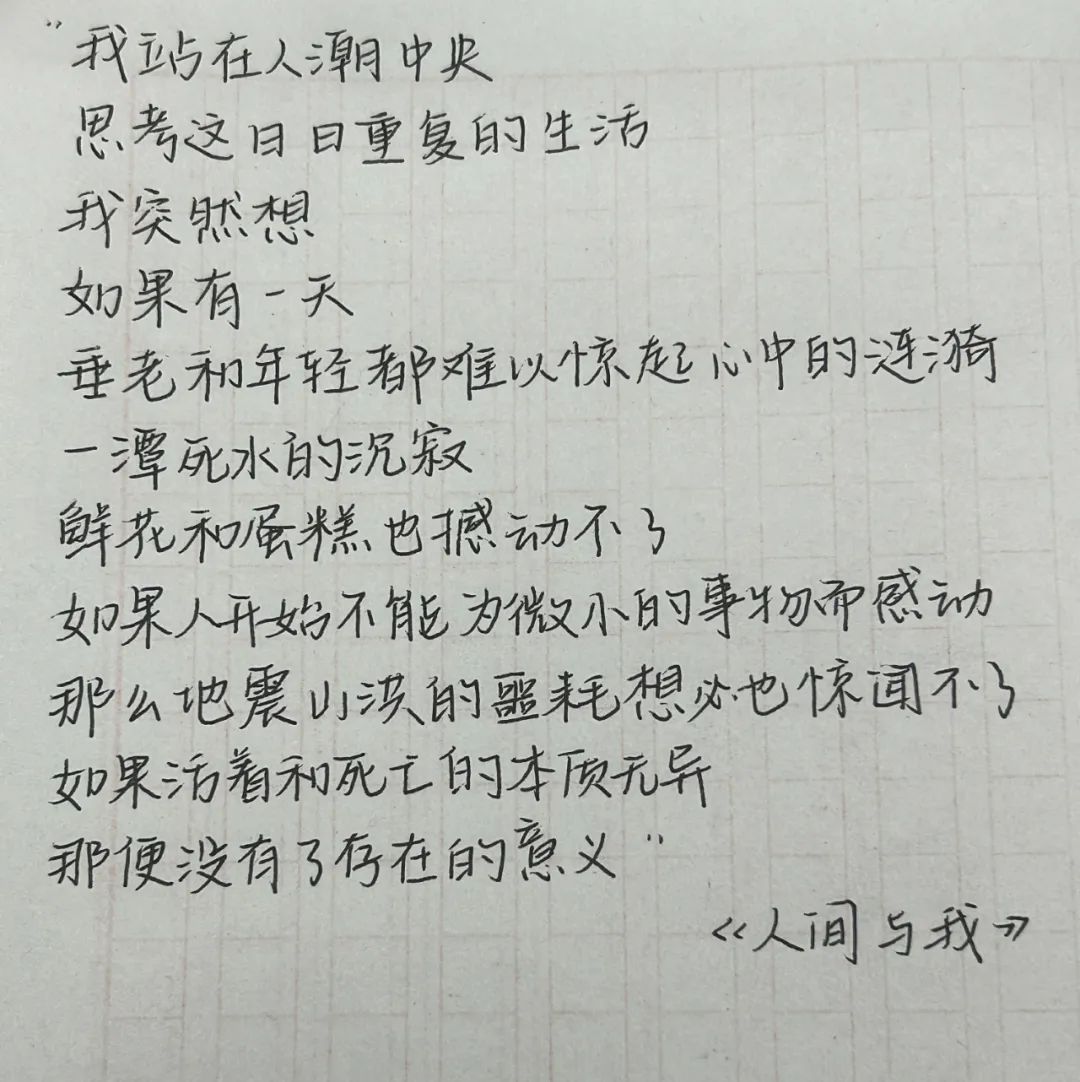 "我站在人潮中央
思考这日日重复的生活
我突然想
如果有一天
垂老和年轻都难以惊起心中的涟漪
一潭死水的沉寂
鲜花和蛋糕也撼动不了
如果人开始不能为微小的事物而感动
那么地震山洪的噩耗想必也惊闻不了
如果活着和死亡的本质无异
那便没有了存在的意义"
《人间与我》